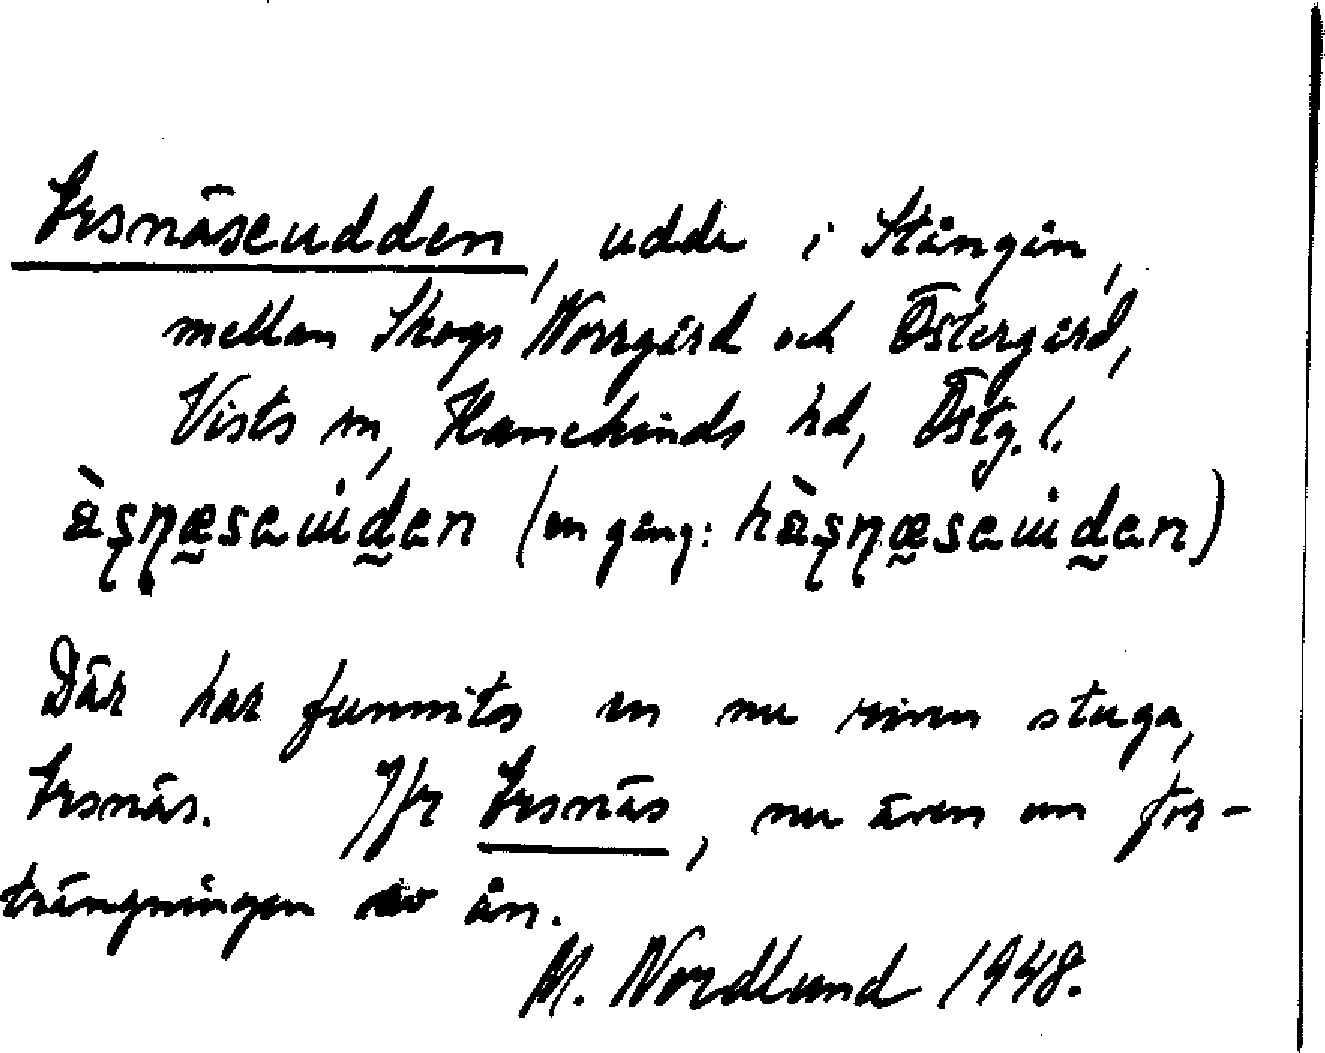 Ersnäseudden, udde i Stångån,
mellan Skogs Norrgård och Östergård,
Vists sn, Hanekinds hd, Östg. l.
(en gång:
Där har funnits en nu riven stuga,
Ersnäs. Jfr Ersnäs, nu även om för-
trängningen av ån.
M. Nordlund 1948.